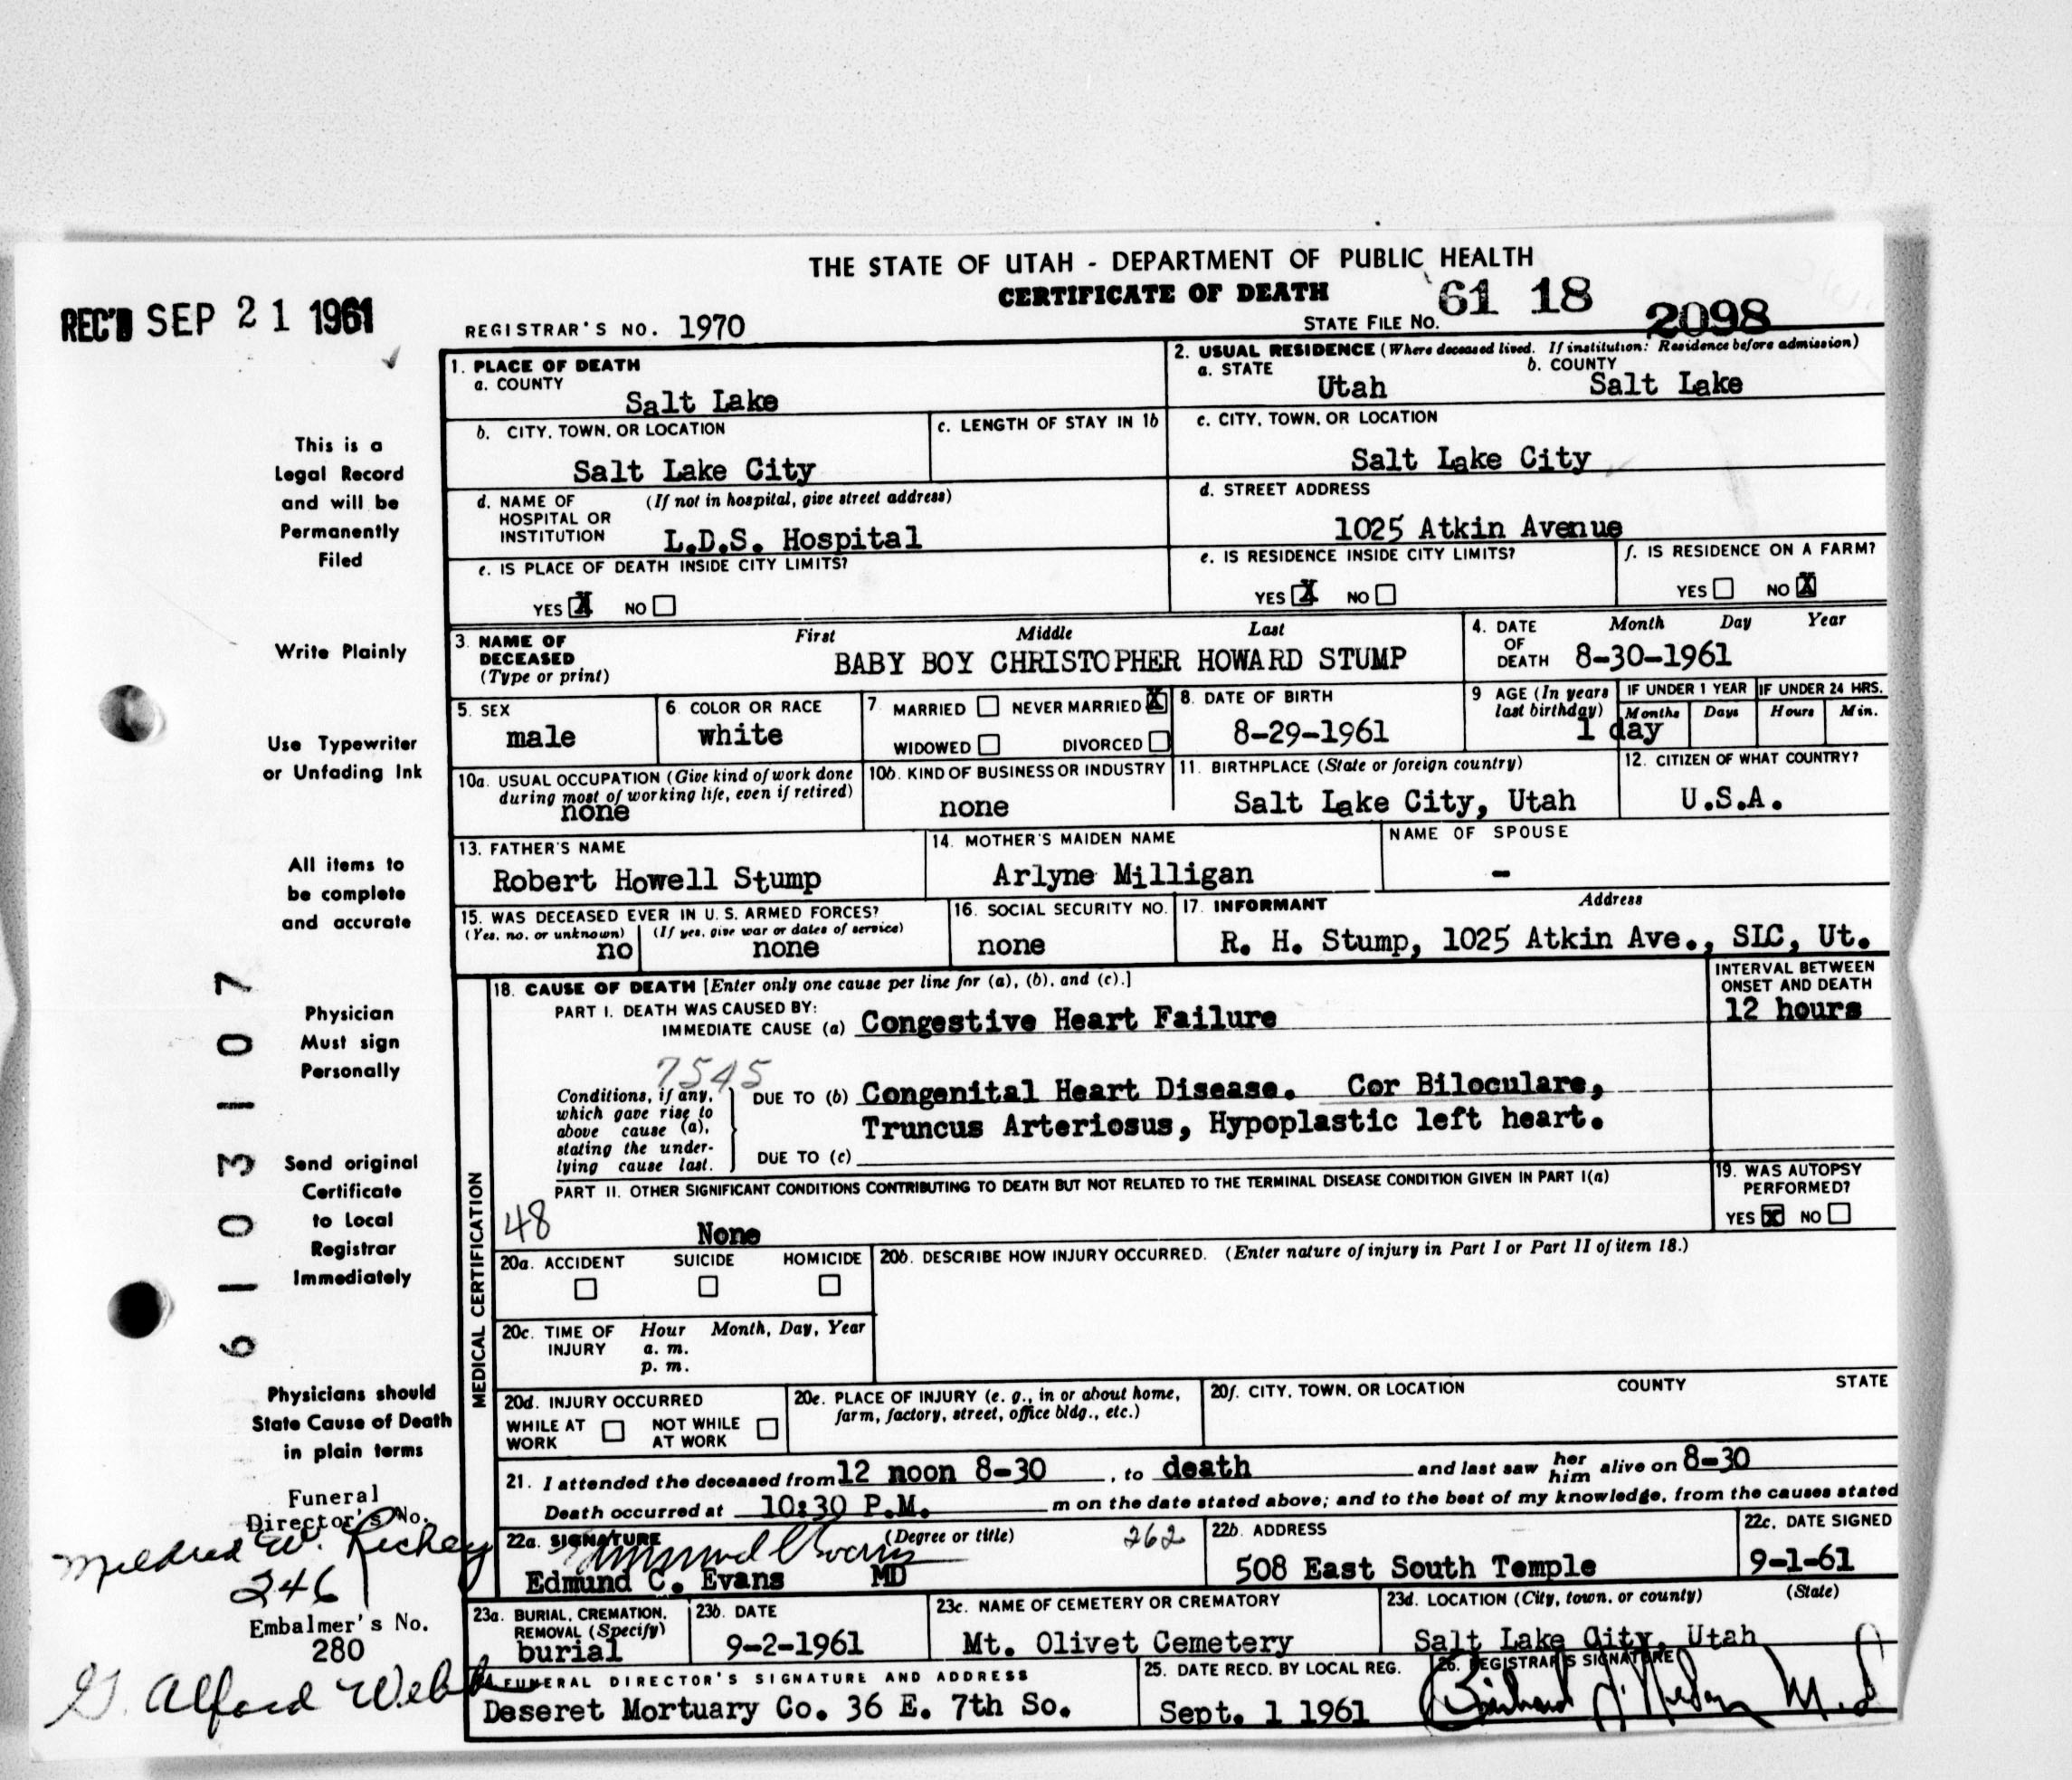 THE STATE OF UTAH - DEPARTMENT OF PUBLIC HEALTH
CERTIFICATE OF DEATH
REC'D SEP 21 1961
REGISTRAR'S NO. 1970
STATE FILE NO. 61 18 2098
1. PLACE OF DEATH
a. COUNTY
Salt Lake
2. USUAL RESIDENCE (Where deceased lived. If institution: Residence before admission)
a. STATE b. COUNTY
Utah Salt Lake
b. CITY, TOWN, OR LOCATION
Salt Lake City
c. LENGTH OF STAY IN 1b
c. CITY, TOWN, OR LOCATION
Salt Lake City
d. NAME OF HOSPITAL OR INSTITUTION (If not in hospital, give street address)
L.D.S. Hospital
d. STREET ADDRESS
1025 Atkin Avenue
e. IS PLACE OF DEATH INSIDE CITY LIMITS?
YES X NO
e. IS RESIDENCE INSIDE CITY LIMITS?
YES X NO
f. IS RESIDENCE ON A FARM?
YES NO X
3. NAME OF DECEASED (Type or print)
First Middle Last
BABY BOY CHRISTOPHER HOWARD STUMP
4. DATE OF DEATH Month Day Year
8-30-1961
5. SEX
male
6. COLOR OR RACE
white
7. MARRIED NEVER MARRIED X
WIDOWED DIVORCED
8. DATE OF BIRTH
8-29-1961
9 AGE (In years last birthday)
IF UNDER 1 YEAR IF UNDER 24 HRS.
Months Days Hours Min.
1 day
10a. USUAL OCCUPATION (Give kind of work done during most of working life, even if retired)
none
10b. KIND OF BUSINESS OR INDUSTRY
none
11. BIRTHPLACE (State or foreign country)
Salt Lake City, Utah
12. CITIZEN OF WHAT COUNTRY?
U.S.A.
13. FATHER'S NAME
Robert Howell Stump
14. MOTHER'S MAIDEN NAME
Arlyne Milligan
NAME OF SPOUSE
-
15. WAS DECEASED EVER IN U. S. ARMED FORCES?
(Yes, no, or unknown) (If yes, give war or dates of service)
no none
16. SOCIAL SECURITY NO.
none
17. INFORMANT Address
R. H. Stump, 1025 Atkin Ave., SLC, Ut.
MEDICAL CERTIFICATION
18. CAUSE OF DEATH [Enter only one cause per line for (a), (b), and (c).]
INTERVAL BETWEEN ONSET AND DEATH
PART I. DEATH WAS CAUSED BY:
IMMEDIATE CAUSE (a) Congestive Heart Failure
12 hours
7545
Conditions, if any, which gave rise to above cause (a), stating the underlying cause last.
DUE TO (b) Congenital Heart Disease. Cor Biloculare,
Truncus Arteriosus, Hypoplastic left heart.
DUE TO (c)
PART II. OTHER SIGNIFICANT CONDITIONS CONTRIBUTING TO DEATH BUT NOT RELATED TO THE TERMINAL DISEASE CONDITION GIVEN IN PART I(a)
48
None
19. WAS AUTOPSY PERFORMED?
YES X NO
20a. ACCIDENT SUICIDE HOMICIDE
20b. DESCRIBE HOW INJURY OCCURRED. (Enter nature of injury in Part I or Part II of item 18.)
20c. TIME OF INJURY Hour Month, Day, Year
a. m.
p. m.
20d. INJURY OCCURRED
WHILE AT WORK NOT WHILE AT WORK
20e. PLACE OF INJURY (e. g., in or about home, farm, factory, street, office bldg., etc.)
20f. CITY, TOWN, OR LOCATION COUNTY STATE
21. I attended the deceased from 12 noon 8-30, to death and last saw her him alive on 8-30
Death occurred at 10:30 P.M. m on the date stated above; and to the best of my knowledge, from the causes stated
22a. SIGNATURE (Degree or title)
262
Edmund C. Evans MD
22b. ADDRESS
508 East South Temple
22c. DATE SIGNED
9-1-61
23a. BURIAL, CREMATION, REMOVAL (Specify)
burial
23b. DATE
9-2-1961
23c. NAME OF CEMETERY OR CREMATORY
Mt. Olivet Cemetery
23d. LOCATION (City, town, or county) (State)
Salt Lake City, Utah
FUNERAL DIRECTOR'S SIGNATURE AND ADDRESS
Deseret Mortuary Co. 36 E. 7th So.
25. DATE RECD. BY LOCAL REG.
Sept. 1 1961
26. REGISTRAR'S SIGNATURE
This is a
Legal Record
and will be
Permanently
Filed
Write Plainly
Use Typewriter
or Unfading Ink
All items to
be complete
and accurate
Physician
Must sign
Personally
Send original
Certificate
to Local
Registrar
Immediately
Physicians should
State Cause of Death
in plain terms
6103107
Funeral
Director's No.
Mildred W. Richey
246
Embalmer's No.
280
G. Alford Webb